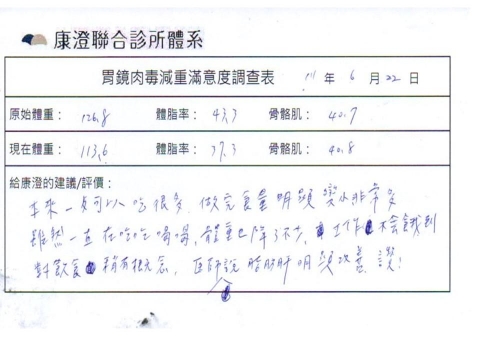 康澄聯合診所體系
胃鏡肉毒減重滿意度調查表 111 年 6 月 22 日
原始體重： 126.8 體脂率： 43.3 骨骼肌： 40.7
現在體重： 113.6 體脂率： 37.3 骨骼肌： 40.8
給康澄的建議/評價：
本來一餐可以吃很多，做完食量明顯變小非常多
雖然一直在吃吃喝喝，體重也降了不少，工作不會餓到
對飲食稍有概念，醫師說脂肪肝明顯改善，讚！